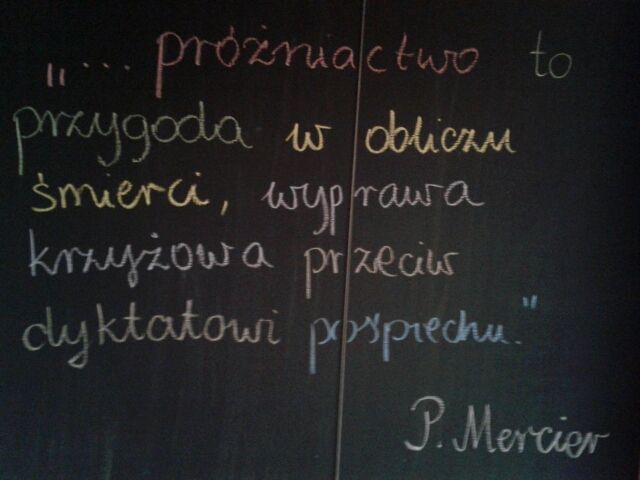 „... próżniactwo to
przygoda w obliczu
śmierci, wyprawa
krzyżowa przeciw
dyktatowi pośpiechu."
P. Mercier